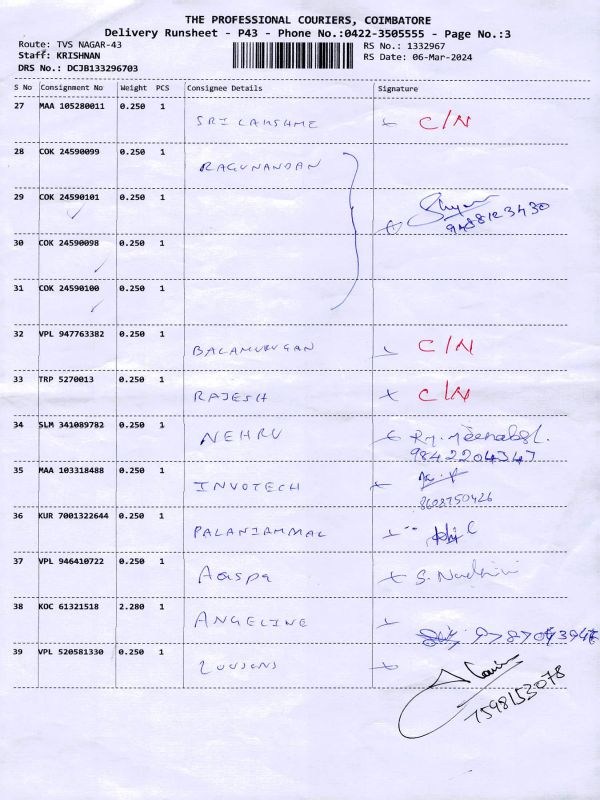 THE PROFESSIONAL COURIERS, COIMBATORE
Delivery Runsheet - P43 - Phone No.:0422-3505555 - Page No.:3
Route: TVS NAGAR-43 RS No.: 1332967
Staff: KRISHNAN RS Date: 06-Mar-2024
DRS No.: DCJB133296703
S No Consignment No Weight PCS Consignee Details Signature
27 MAA 105280011 0.250 1
SRI LAKSHME C/N
28 COK 24590099 0.250 1
RAGUNANDAN
29 COK 24590101 0.250 1
30 COK 24590098 0.250 1
31 COK 24590100 0.250 1
32 VPL 947763382 0.250 1
BALAMURUGAN C/N
33 TRP 5270013 0.250 1
RAJESH C/N
34 SLM 341089782 0.250 1
NEHRU
9842204347
35 MAA 103318488 0.250 1
INVOTECH
8608750426
36 KUR 7001322644 0.250 1
PALANIAMMAL
37 VPL 946410722 0.250 1
Aaspa
38 KOC 61321518 2.280 1
ANGELINE
39 VPL 520581330 0.250 1
7598153078